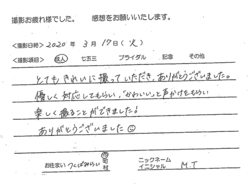 撮影お疲れ様でした。 感想をお願いいたします。
<撮影日時> 2020 年 3 月 17 日(火)
<撮影項目> 成人 七五三 ブライダル 記念 その他
とてもきれいに撮っていただき、ありがとうございました。
優しく対応してもらい、かわいいと声かけをもらい
楽しく撮ることができました!
ありがとうございました☺
お住まい つくばみらい 市 町 村
ニックネーム
イニシャル M.T